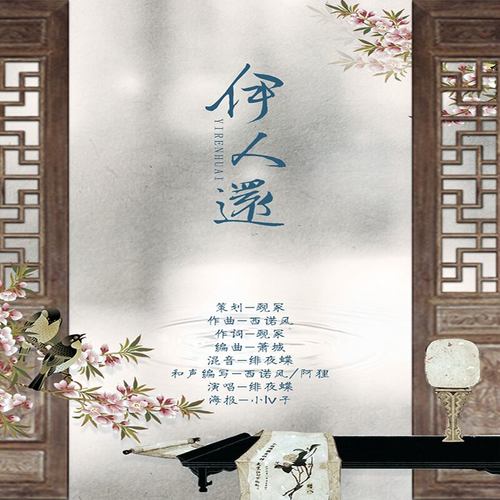 伊人還
YIRENHUAI
策划—觐冢
作曲—西诺风
作词—觐冢
编曲—萧城
混音—绯夜蝶
和声编写—西诺风/阿狸
演唱—绯夜蝶
海报—小Ⅳ子